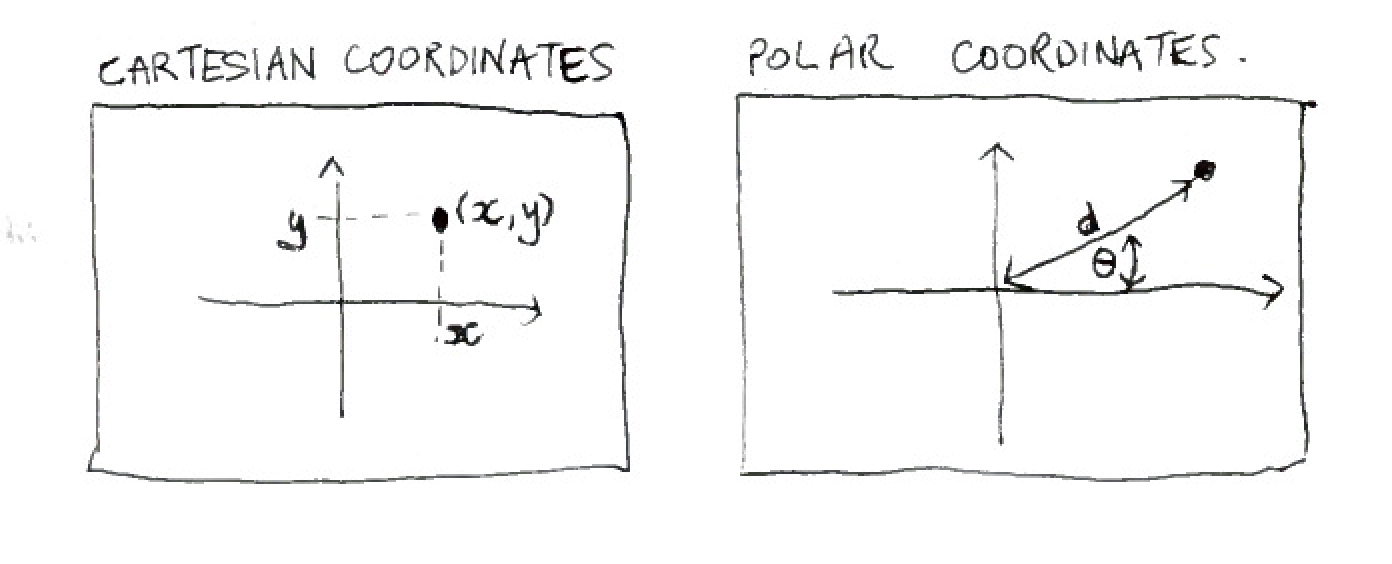 CARTESIAN COORDINATES
y
(x,y)
x
POLAR COORDINATES.
d
θ